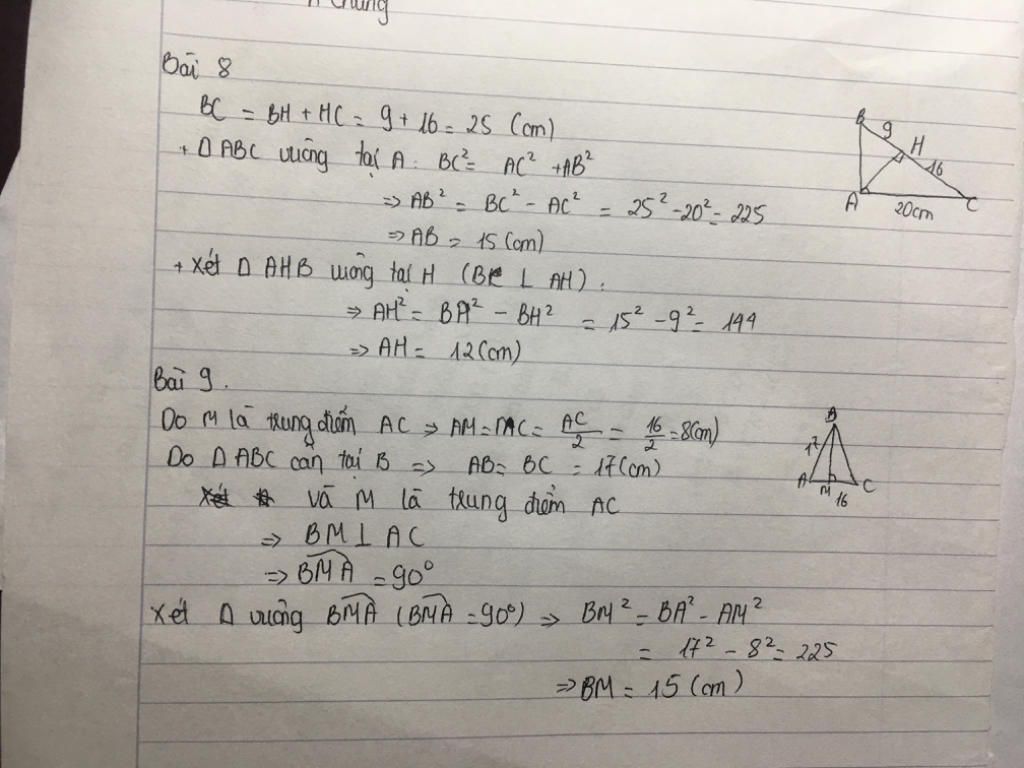 A chung
Bài 8
BC = BH + HC = 9 + 16 = 25 (cm)
+ Δ ABC vuông tại A : BC² = AC² + AB²
⇒ AB² = BC² - AC² = 25² - 20² = 225
⇒ AB = 15 (cm)
+ Xét Δ AHB vuông tại H (BC ⊥ AH) .
⇒ AH² = BA² - BH² = 15² - 9² = 144
⇒ AH = 12 (cm)
B 9 H 16 A 20cm C
Bài 9 .
Do M là trung điểm AC ⇒ AM = MC = AC/2 = 16/2 = 8 (cm)
Do Δ ABC cân tại B ⇒ AB = BC = 17 (cm)
và M là trung điểm AC
⇒ BM ⊥ AC
⇒ \widehat{BMA} = 90°
Xét Δ vuông \widehat{BMA} (\widehat{BMA} = 90°) ⇒ BM² = BA² - AM²
= 17² - 8² = 225
⇒ BM = 15 (cm)
B 17 A M C 16